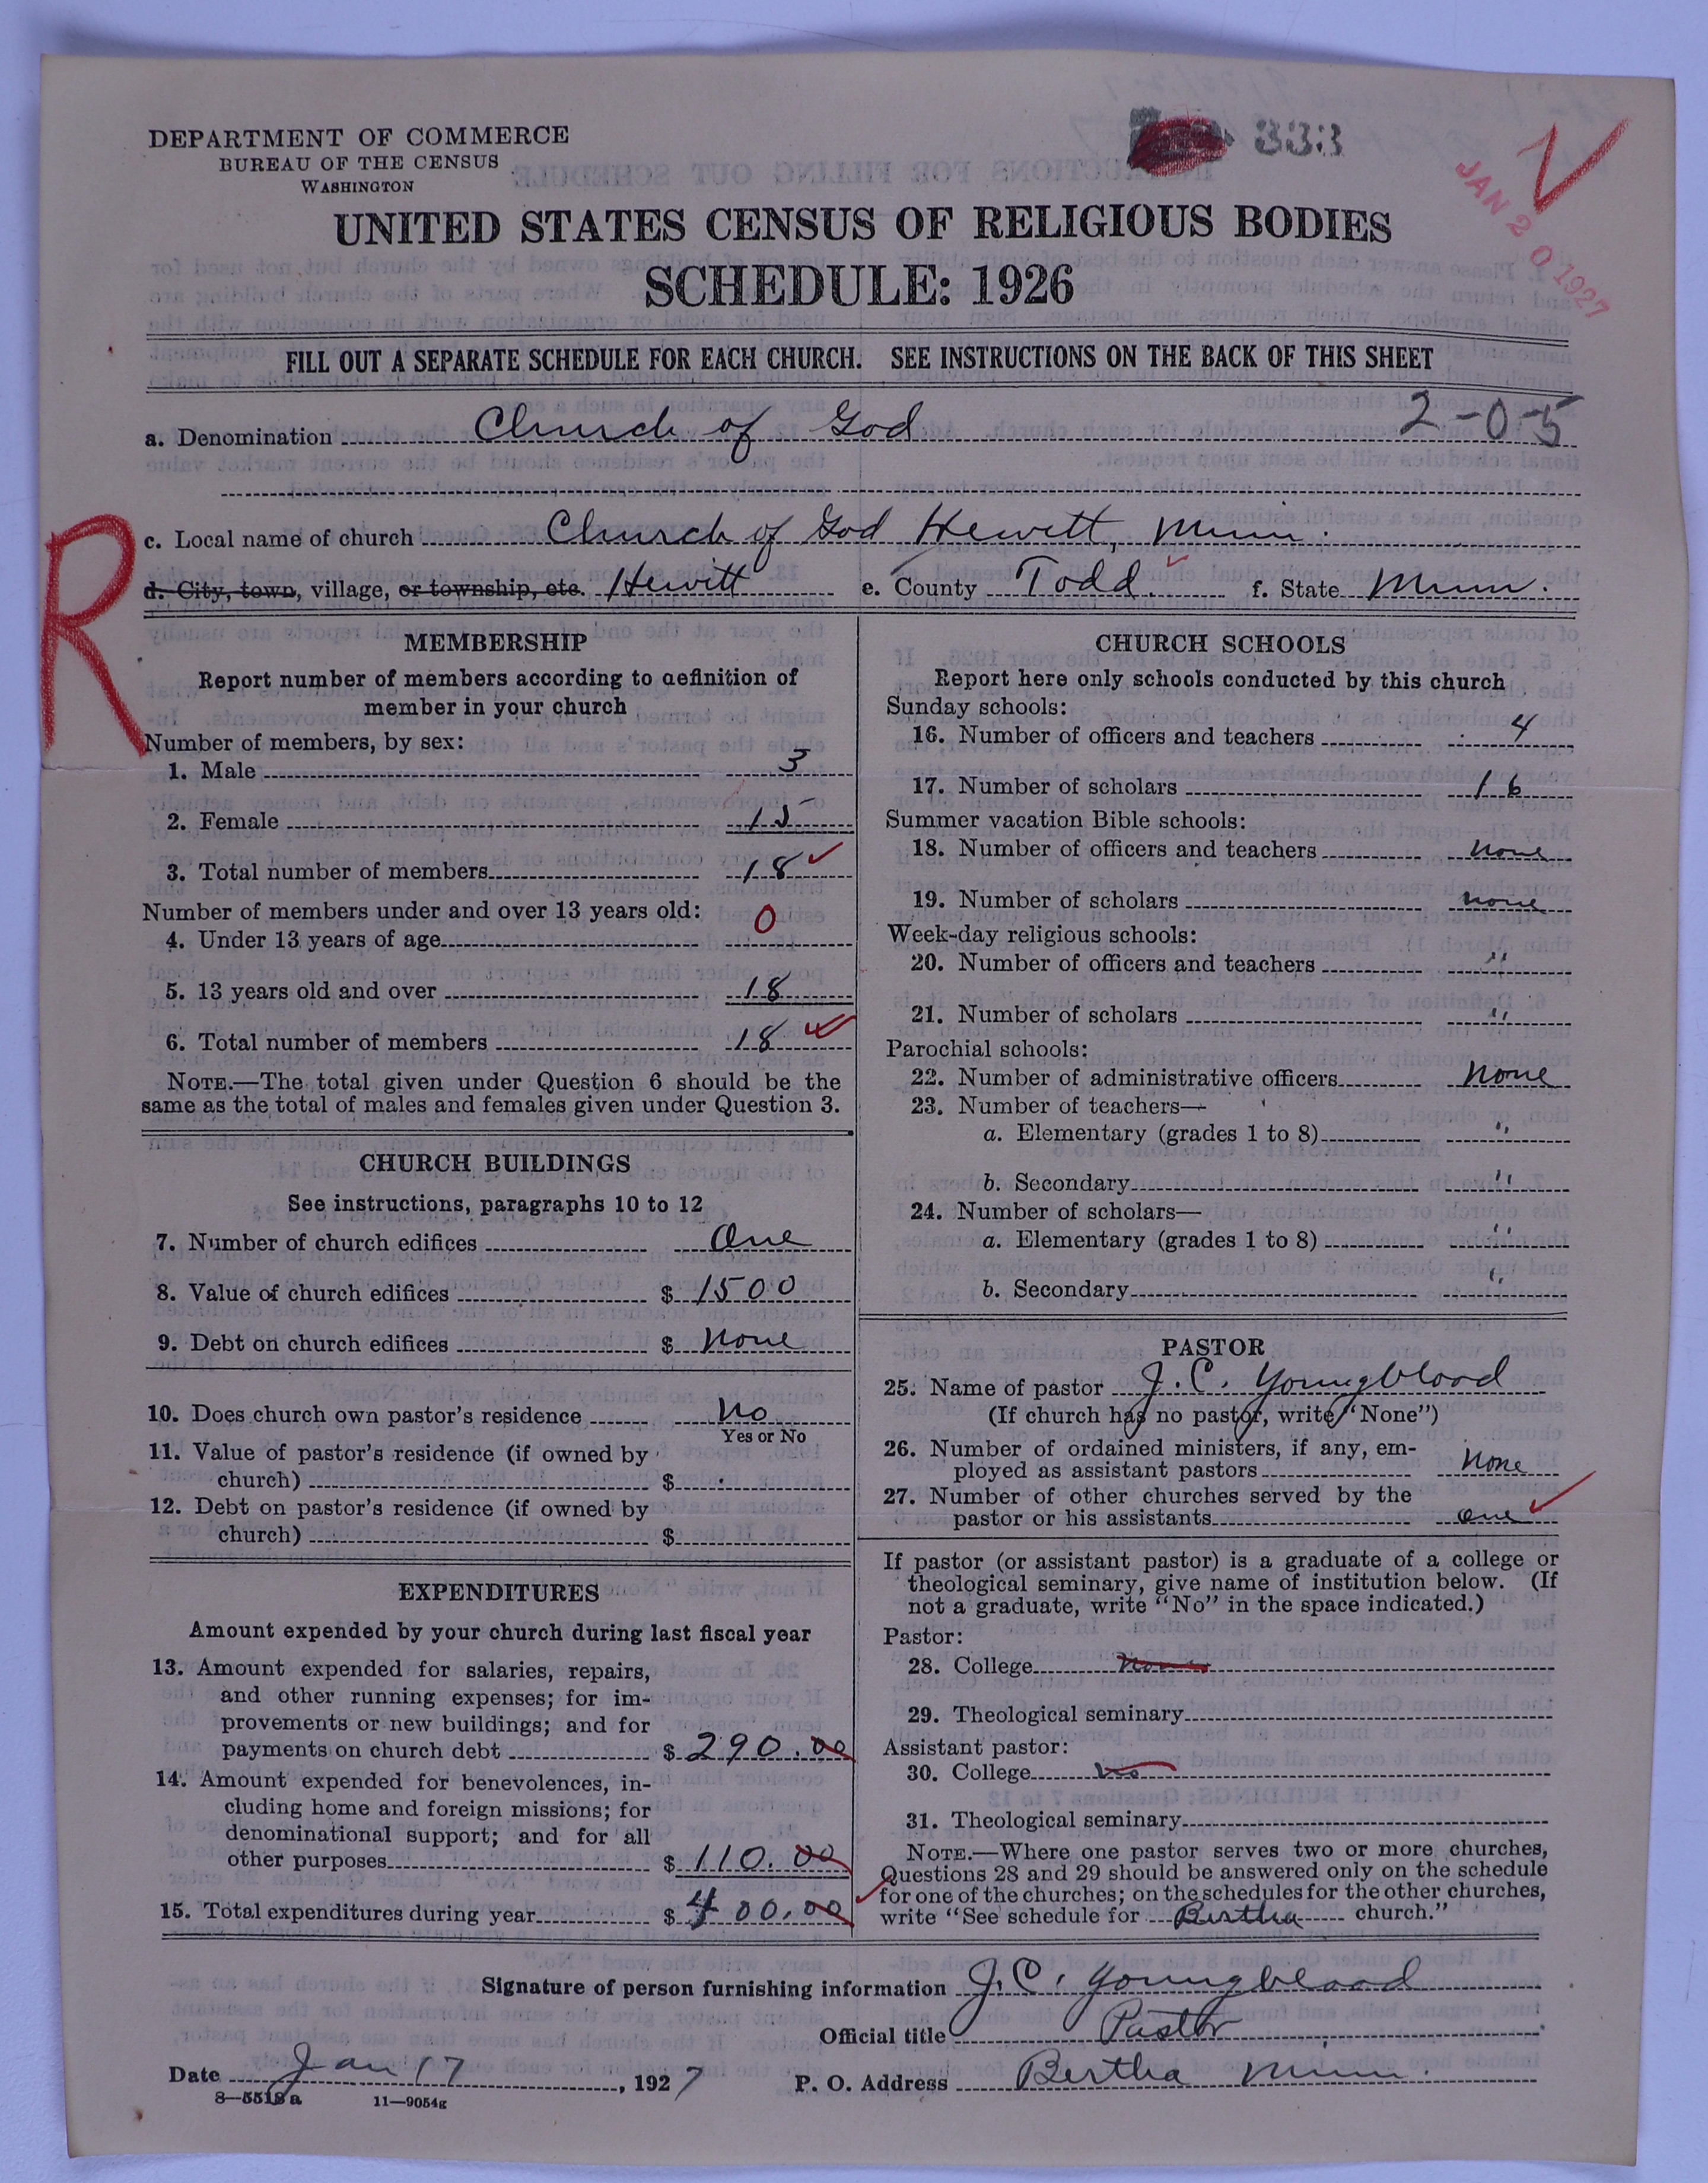 DEPARTMENT OF COMMERCE
BUREAU OF THE CENSUS
WASHINGTON
333
JAN 20 1927
UNITED STATES CENSUS OF RELIGIOUS BODIES
SCHEDULE: 1926
FILL OUT A SEPARATE SCHEDULE FOR EACH CHURCH. SEE INSTRUCTIONS ON THE BACK OF THIS SHEET
a. Denomination Church of God 2-0-5
c. Local name of church Church of God Hewitt, Minn.
R
d. City, town, village, or township, etc. Hewitt e. County Todd. f. State Minn.
MEMBERSHIP
Report number of members according to definition of
member in your church
Number of members, by sex:
1. Male 3
2. Female 15
3. Total number of members 18
Number of members under and over 13 years old:
4. Under 13 years of age 0
5. 13 years old and over 18
6. Total number of members 18
NOTE.—The total given under Question 6 should be the
same as the total of males and females given under Question 3.
CHURCH BUILDINGS
See instructions, paragraphs 10 to 12
7. Number of church edifices One
8. Value of church edifices $ 1500
9. Debt on church edifices $ none
10. Does church own pastor's residence No
Yes or No
11. Value of pastor's residence (if owned by
church) $
12. Debt on pastor's residence (if owned by
church) $
EXPENDITURES
Amount expended by your church during last fiscal year
13. Amount expended for salaries, repairs,
and other running expenses; for im-
provements or new buildings; and for
payments on church debt $ 290.00
14. Amount expended for benevolences, in-
cluding home and foreign missions; for
denominational support; and for all
other purposes $ 110.00
15. Total expenditures during year $ 400.00
CHURCH SCHOOLS
Report here only schools conducted by this church
Sunday schools:
16. Number of officers and teachers 4
17. Number of scholars 16
Summer vacation Bible schools:
18. Number of officers and teachers none
19. Number of scholars none
Week-day religious schools:
20. Number of officers and teachers "
21. Number of scholars "
Parochial schools:
22. Number of administrative officers None
23. Number of teachers—
a. Elementary (grades 1 to 8) "
b. Secondary "
24. Number of scholars—
a. Elementary (grades 1 to 8) "
b. Secondary "
PASTOR
25. Name of pastor J. C. Youngblood
(If church has no pastor, write "None")
26. Number of ordained ministers, if any, em-
ployed as assistant pastors None
27. Number of other churches served by the
pastor or his assistants one
If pastor (or assistant pastor) is a graduate of a college or
theological seminary, give name of institution below. (If
not a graduate, write "No" in the space indicated.)
Pastor:
28. College
29. Theological seminary
Assistant pastor:
30. College No
31. Theological seminary
NOTE.—Where one pastor serves two or more churches,
Questions 28 and 29 should be answered only on the schedule
for one of the churches; on the schedules for the other churches,
write "See schedule for Bertha church."
Signature of person furnishing information J. C. Youngblood
Official title Pastor
Date Jan 17, 1927 P. O. Address Bertha Minn.
8—5518a 11—9054g